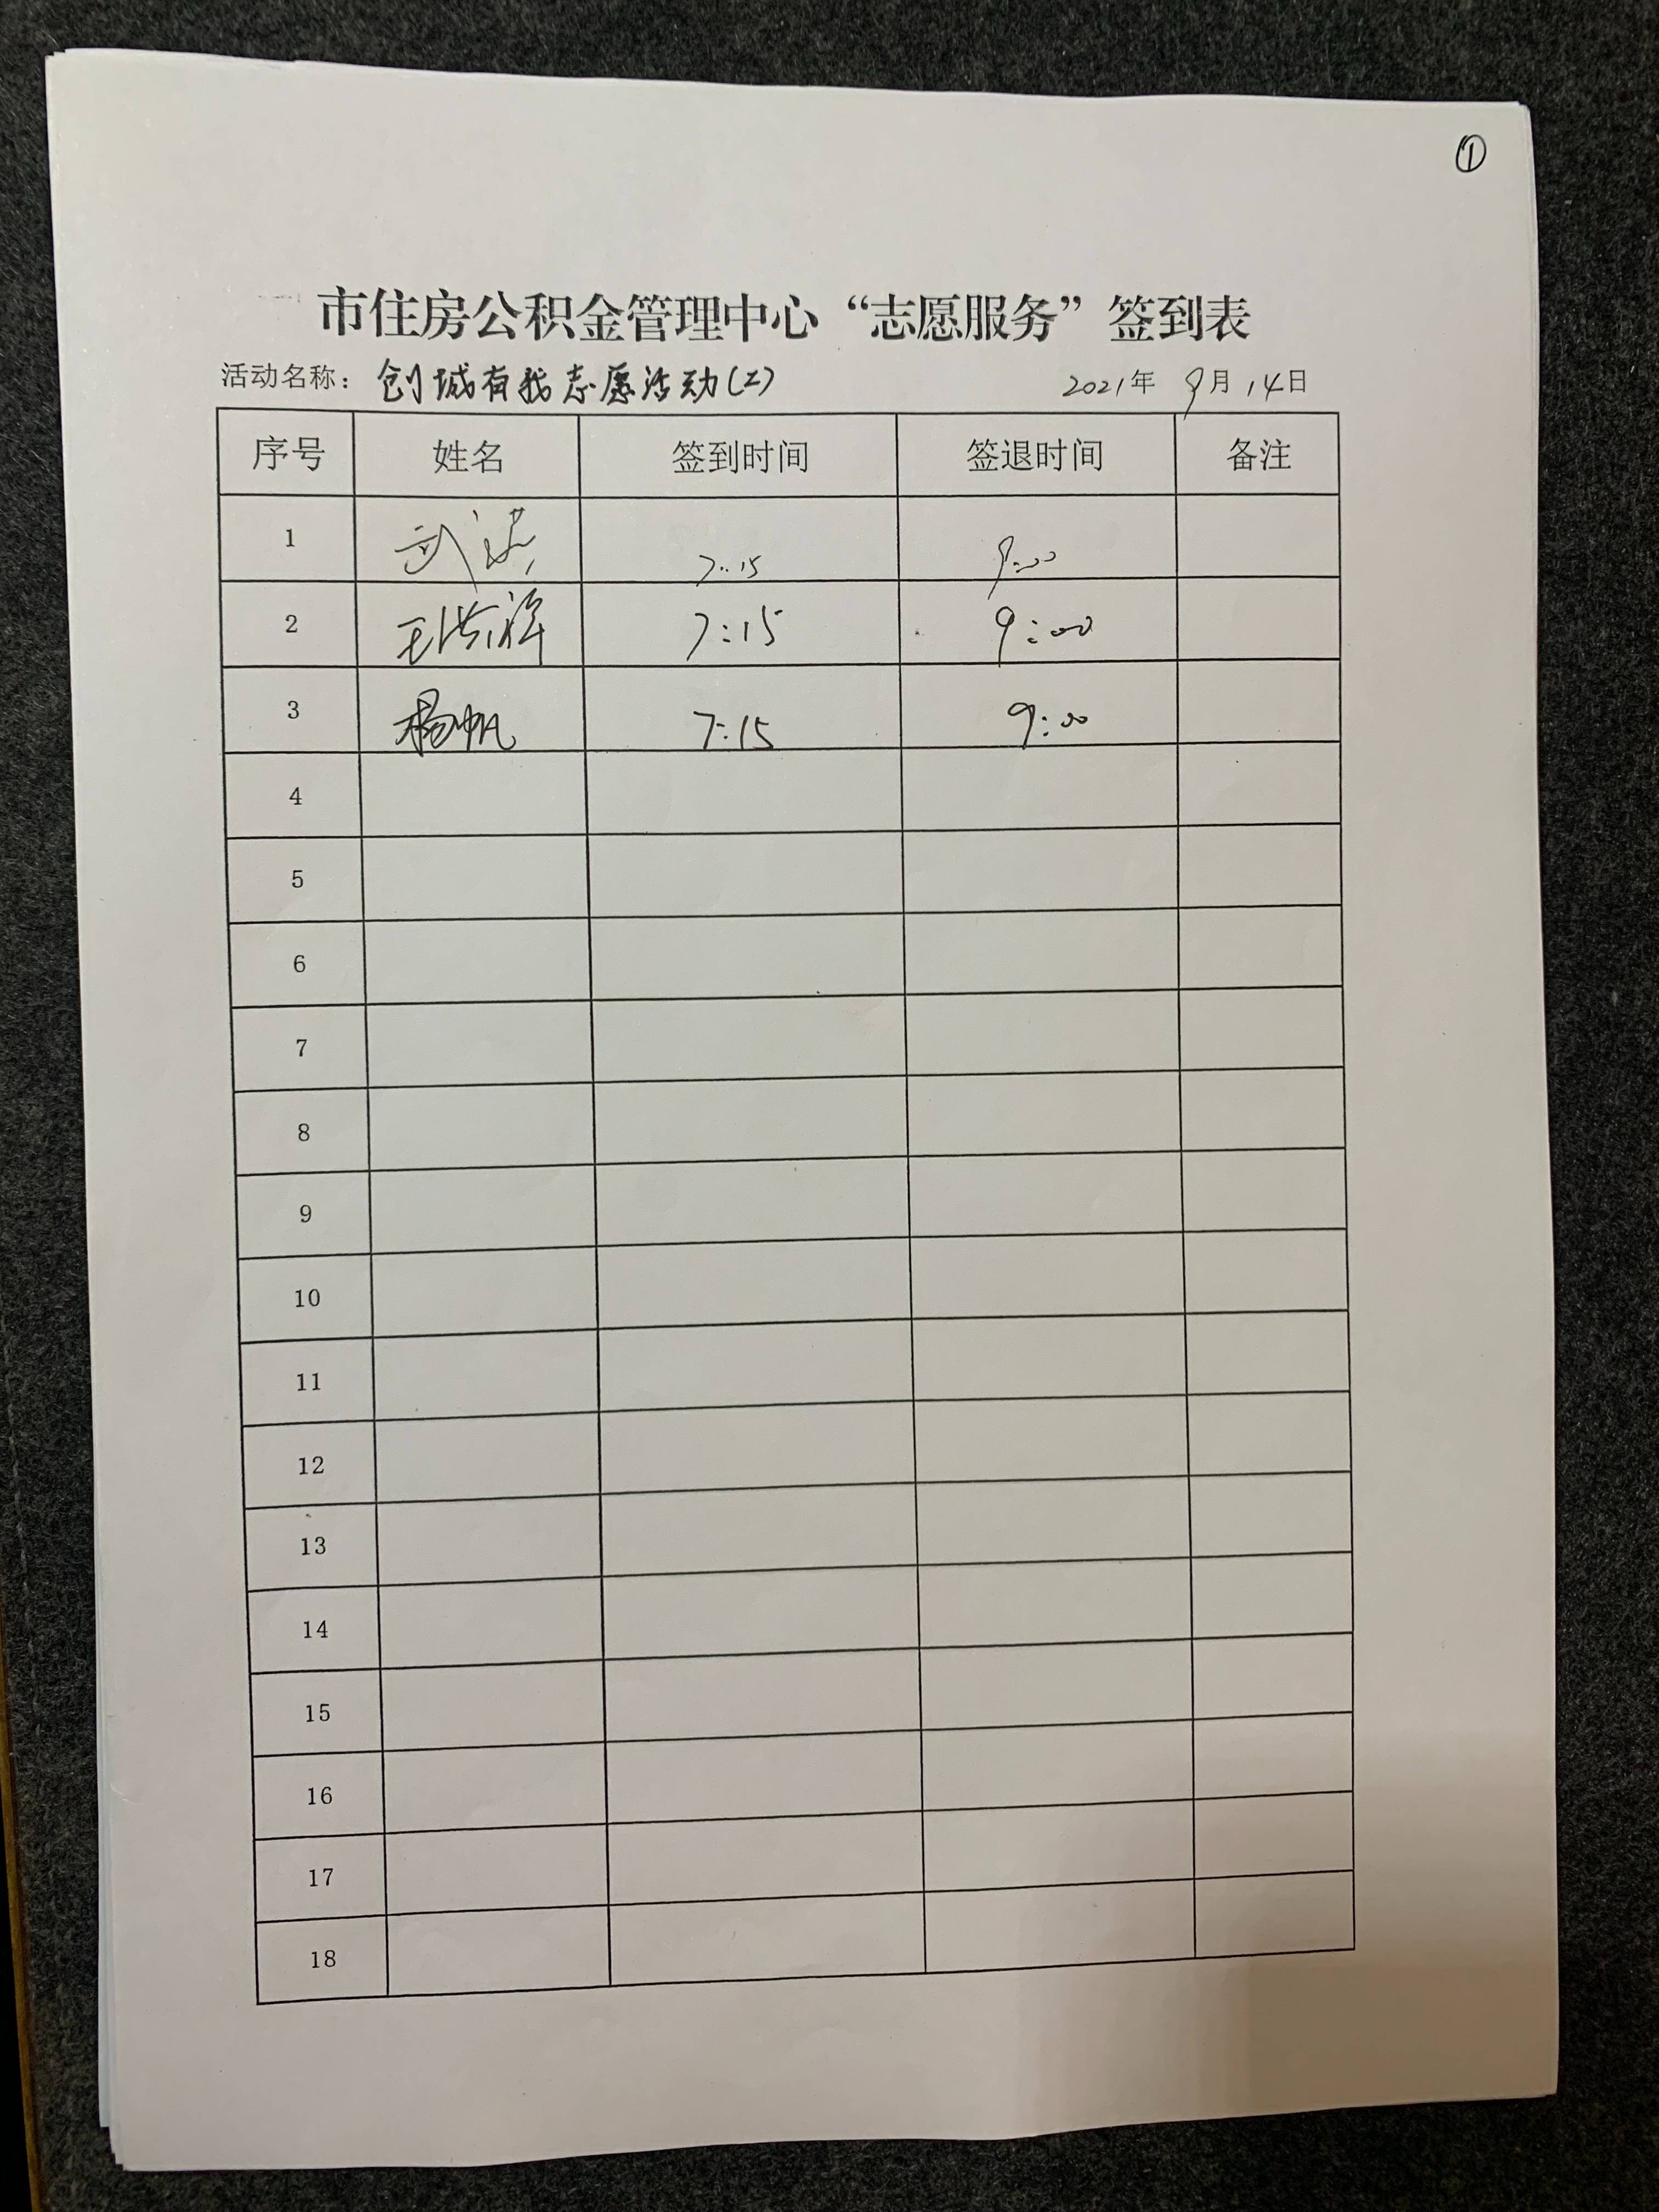 ①
市住房公积金管理中心“志愿服务”签到表
活动名称：创城有我志愿活动(2) 2021年 9月 14日
序号 姓名 签到时间 签退时间 备注
1 武 7:15 9:00
2 王 7:15 9:00
3 杨帆 7:15 9:00
4
5
6
7
8
9
10
11
12
13
14
15
16
17
18